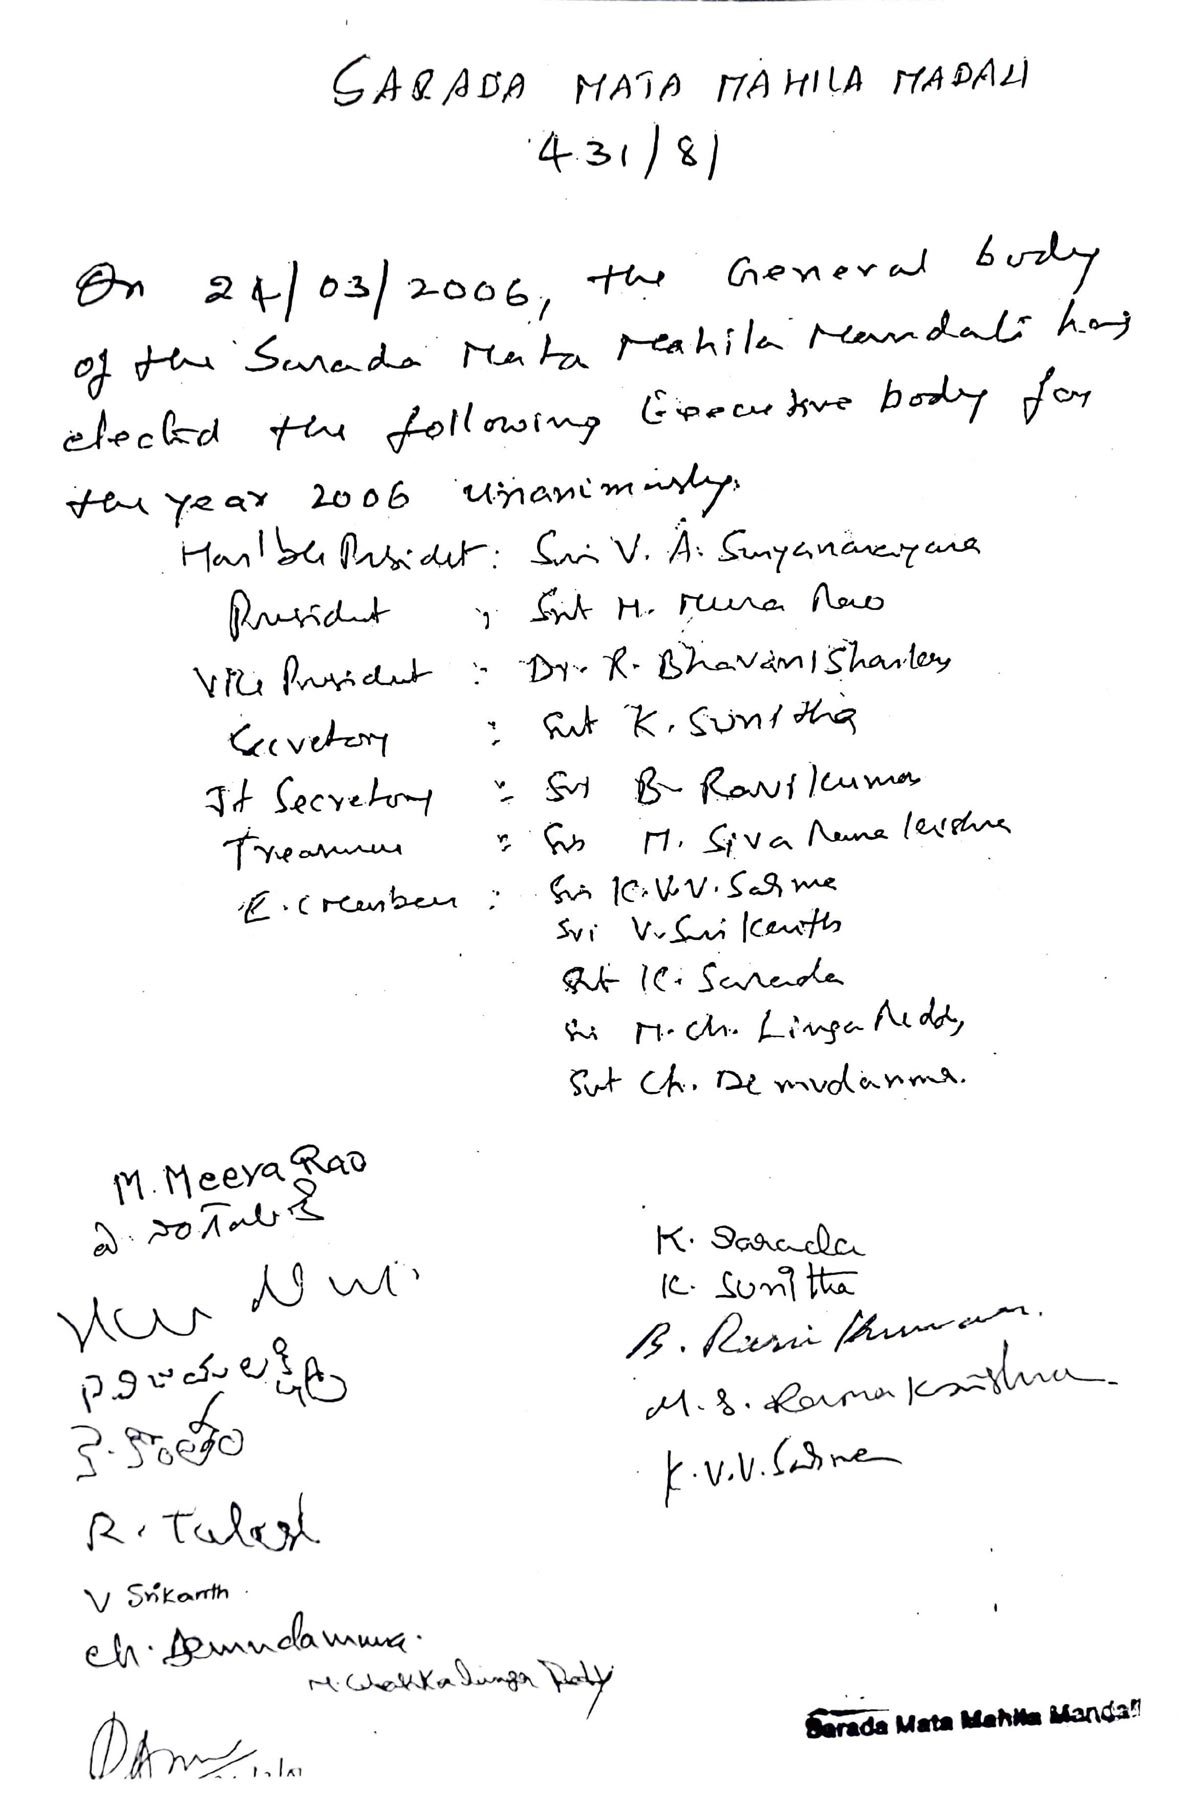 SARADA MATA MAHILA MADALI
431/81
On 24/03/2006, the General body
of the Sarada Mata Mahila Mandali has
elected the following Executive body for
the year 2006 unanimously.
Hon'ble President: Sri V. A. Suryanarayana
President : Smt M. Meera Rao
Vice President : Dr. R. Bhavani Shankar
Secretary : Smt K. Sunitha
Jt Secretory : Sri B Ravi Kumar
Treasurer : Sri M. Siva Rama Krishna
E.C Members : Sri K.V.V. Sarma
Sri V. Sri Kanth
Smt K. Sarada
Sri M. Ch. Linga Reddy
Smt Ch. Demudamma.
M. Meera Rao
K. Sarada
K. Sunitha
B. Ravi Kumar.
M. S. Rama Krishna
K.V.V. Sarma
R.
V Srikanth
Ch. Demudamma.
M. Chakkalinga Reddy
Sarada Mata Mahila Mandali